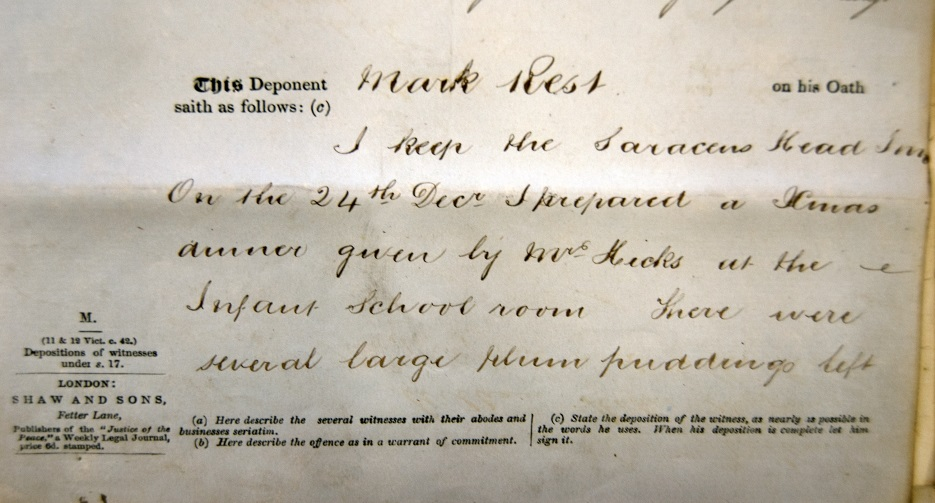 This Deponent Mark Rest on his Oath
saith as follows: (c)
I keep the Saracens Head Inn
On the 24th Decr I prepared a Xmas
dinner given by Mrs Hicks at the
Infant School room There were
several large plum puddings left
M.
(11 & 12 Vict. c. 42.)
Depositions of witnesses
under s. 17.
LONDON:
SHAW AND SONS,
Fetter Lane,
Publishers of the "Justice of the
Peace," a Weekly Legal Journal,
price 6d. stamped.
(a) Here describe the several witnesses with their abodes and
businesses seriatim.
(b) Here describe the offence as in a warrant of commitment.
(c) State the deposition of the witness, as nearly as possible in
the words he uses. When his deposition is complete let him
sign it.